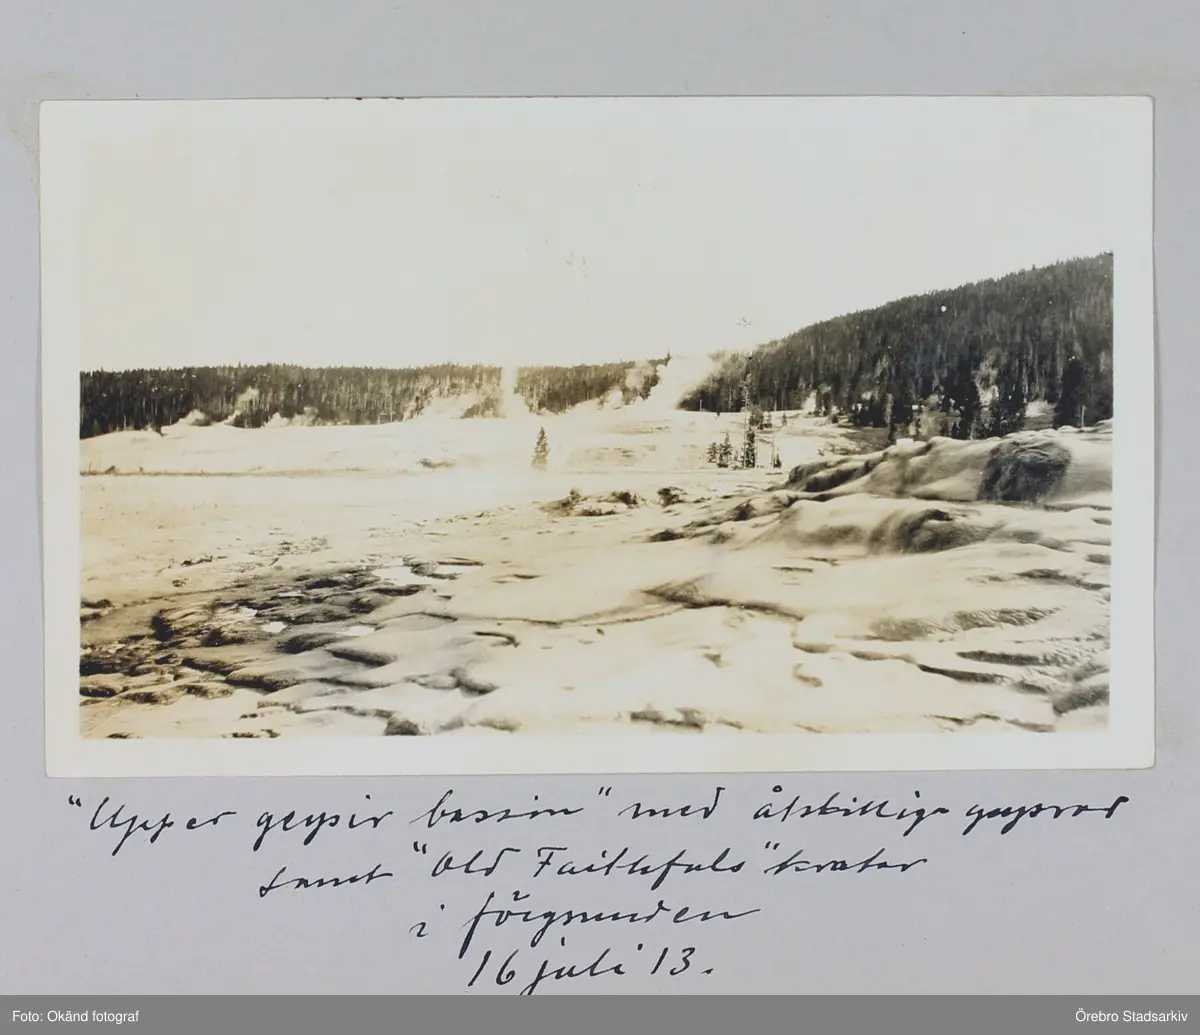 "Upper geysir bassin" med åtskilliga geysrar
samt "Old Faithfuls" krater
i förgrunden
16 juli 13.
Foto: Okänd fotograf
Örebro Stadsarkiv